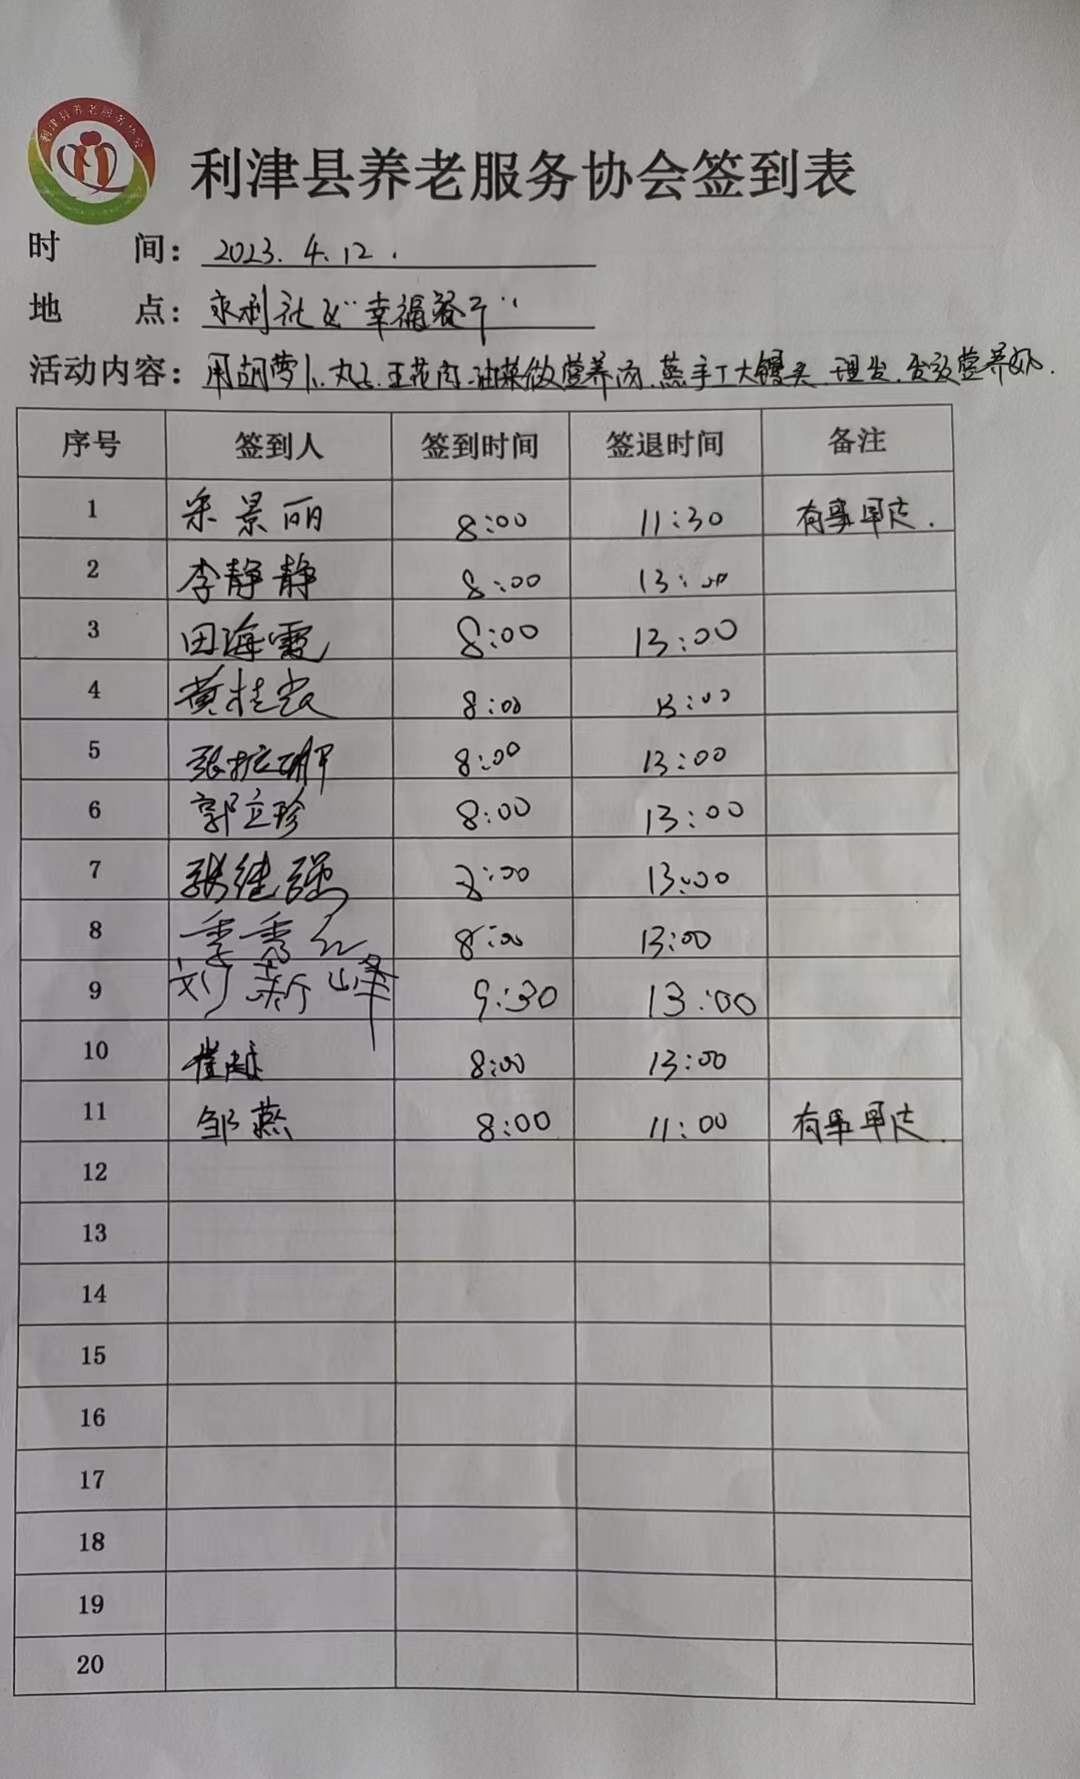 利津县养老服务协会
利津县养老服务协会签到表
时 间: 2023.4.12.
地 点: 永利社区"幸福餐厅"
活动内容: 用胡萝卜.丸子.五花肉.油菜做营养汤.蒸手工大馒头.理发.发放营养奶.
序号 签到人 签到时间 签退时间 备注
1 景丽 8:00 11:30 有事早走.
2 李静静 8:00 13:00
3 田海霞 8:00 13:00
4 黄桂 8:00 13:00
5 张 8:00 13:00
6 郭立珍 8:00 13:00
7 张继强 8:00 13:00
8 季秀红 8:00 13:00
9 刘新峰 9:30 13:00
10 崔 8:00 13:00
11 邹燕 8:00 11:00 有事早走.
12
13
14
15
16
17
18
19
20